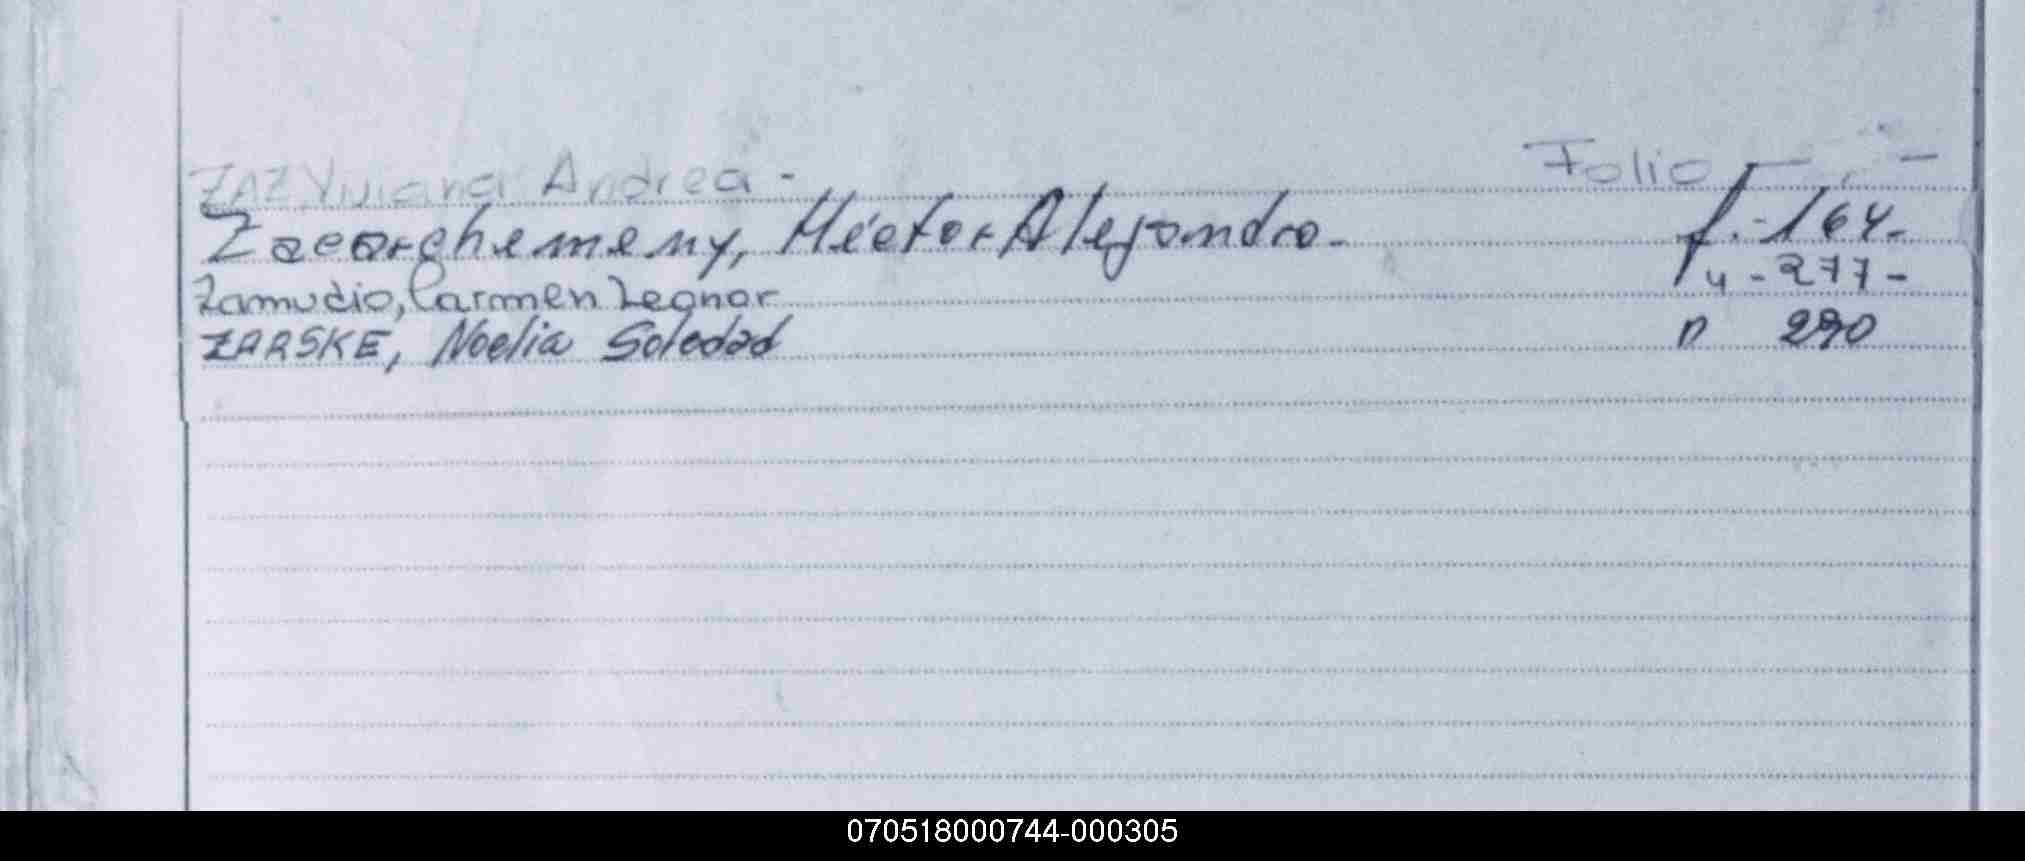 ZAZ Viviana Andrea - Folio
Zacarchemeny, Héctor Alejandro - f. - 164 -
Zamudio, Carmen Leonor " - 277 -
ZARSKE, Noelia Soledad " 290
070518000744-000305